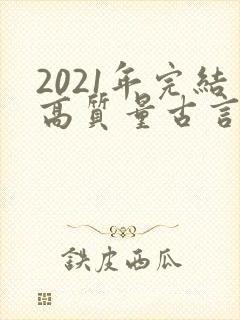 2021年完結
高質量古言
鉄皮西瓜